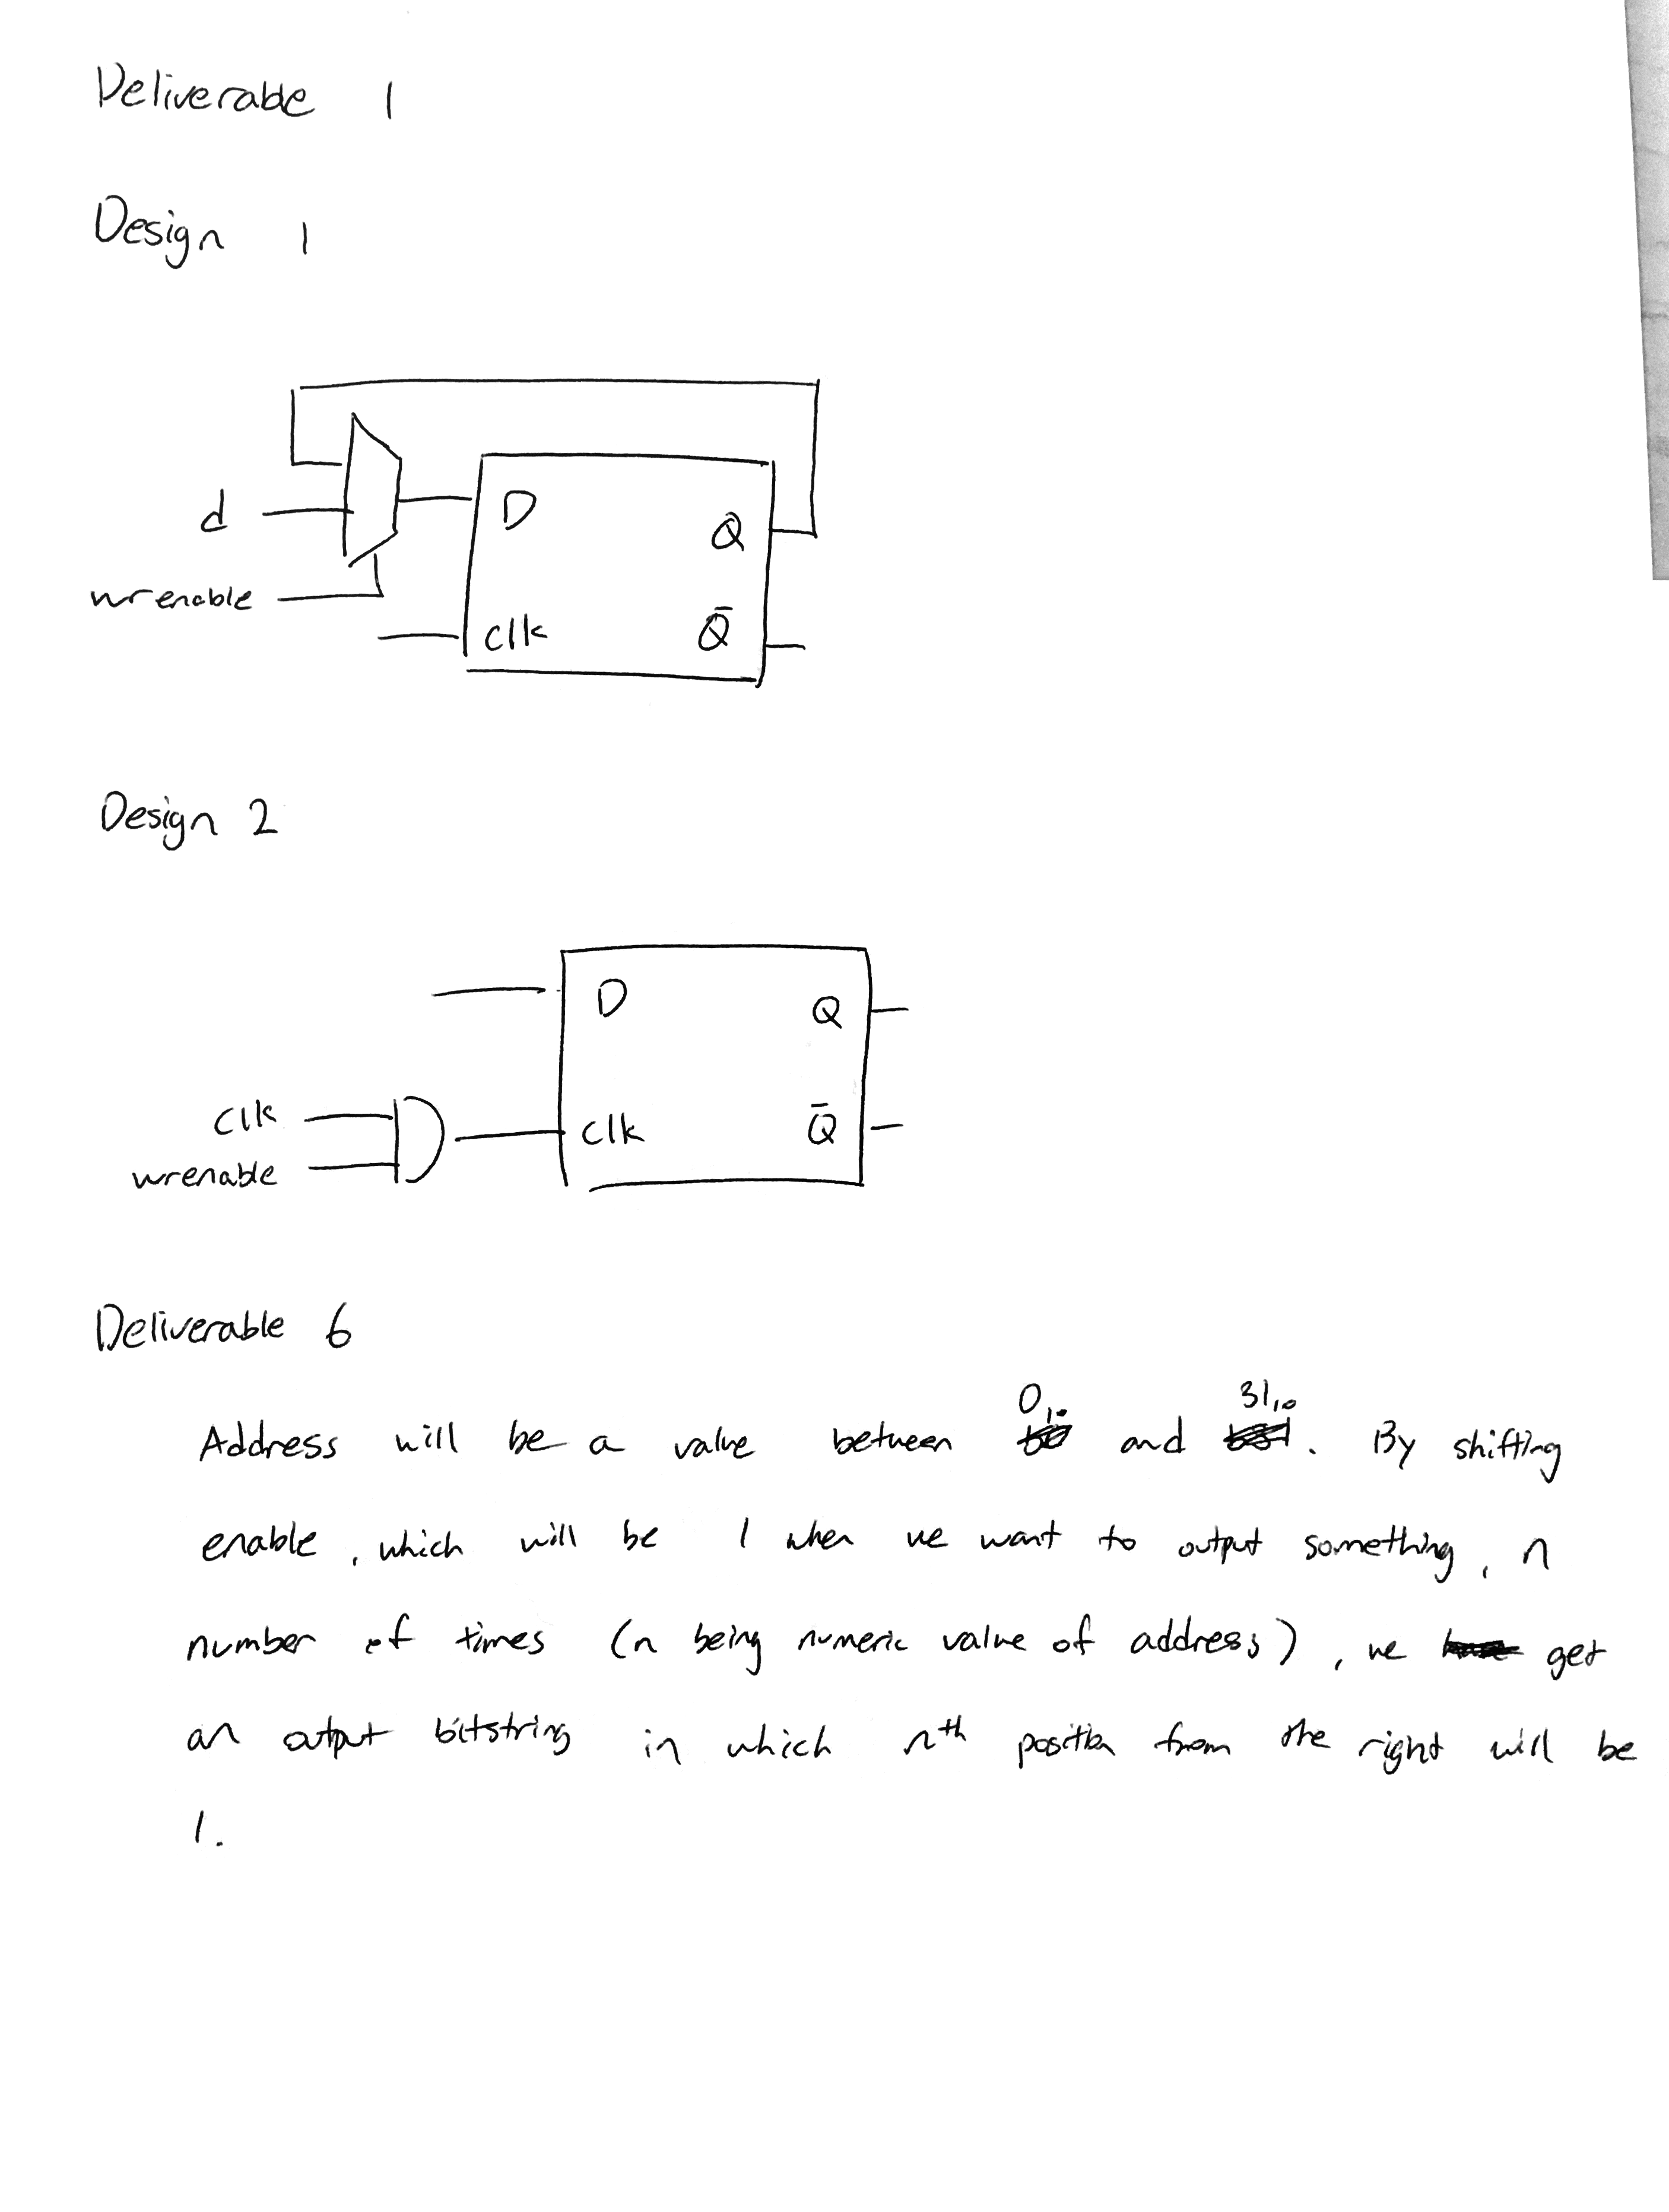 Deliverable 1
Design 1
d
D
Q
wrenable
clk
Q̄
Design 2
D
Q
clk
clk
Q̄
wrenable
Deliverable 6
0₁₀ 31₁₀
Address will be a value between and . By shifting
enable, which will be 1 when we want to output something, n
number of times (n being numeric value of address), we get
an output bitstring in which nth position from the right will be
1.